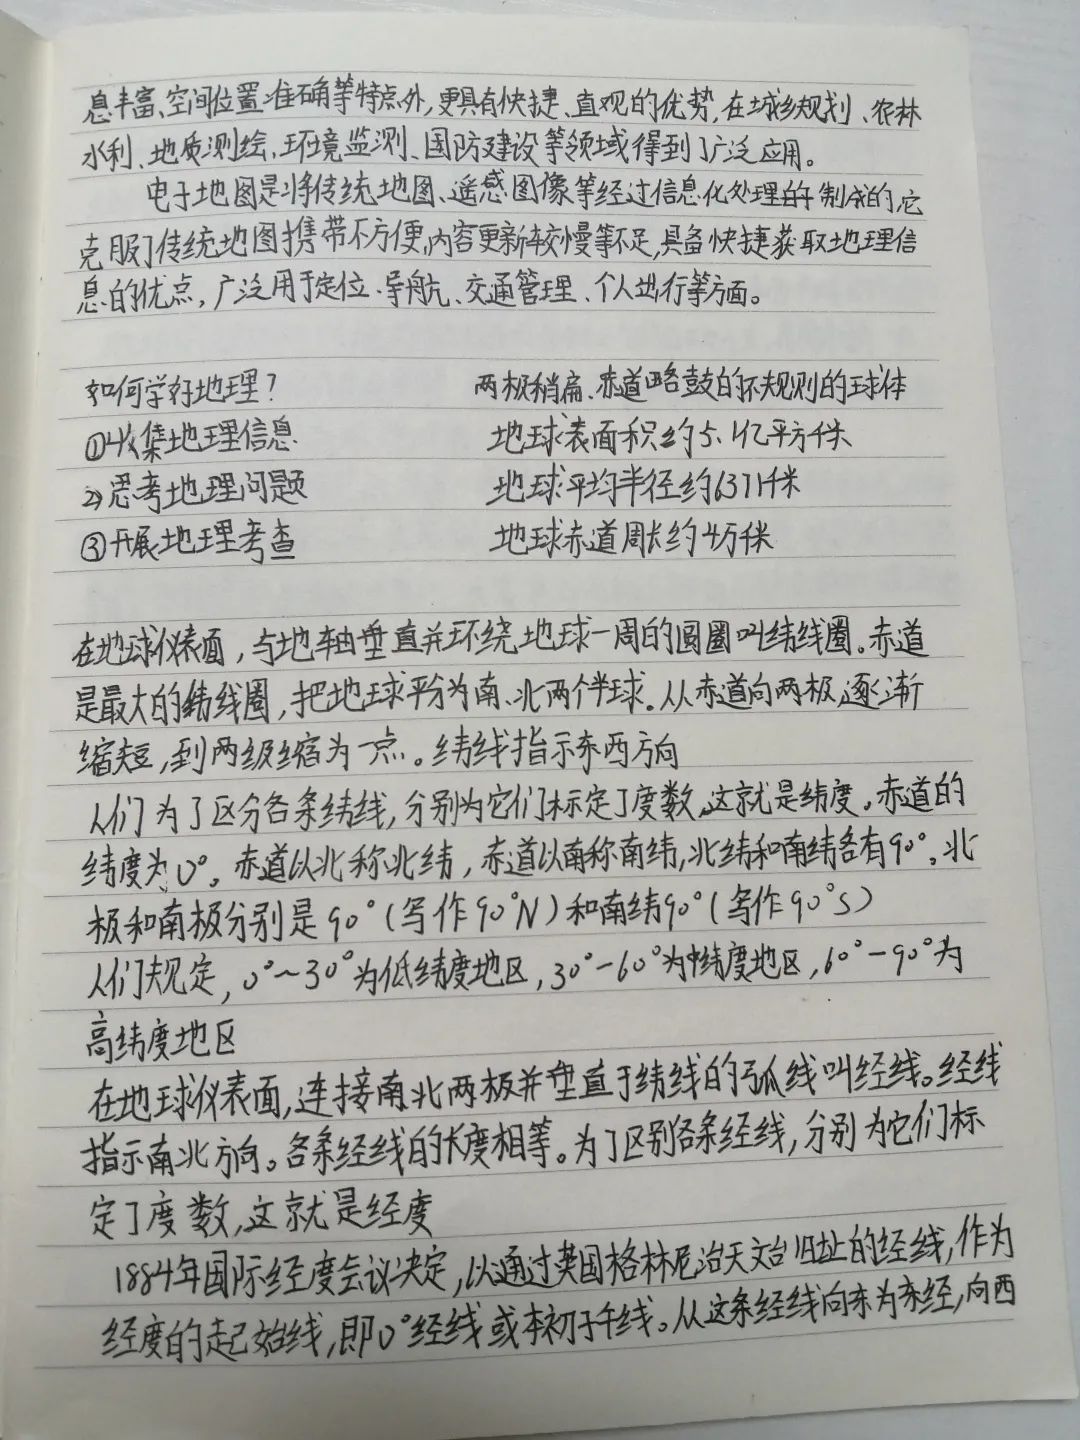 息丰富、空间位置准确等特点外,更具有快捷、直观的优势,在城乡规划、农林
水利、地质测绘、环境监测、国防建设等领域得到了广泛应用。
电子地图是将传统地图、遥感图像等经过信息化处理制成的,它
克服了传统地图携带不方便,内容更新较慢等不足,具备快捷获取地理信
息的优点,广泛用于定位、导航、交通管理、个人出行等方面。
如何学好地理?
①收集地理信息
②思考地理问题
③开展地理考查
两极稍扁、赤道略鼓的不规则的球体
地球表面积约5.1亿平方千米
地球平均半径约6371千米
地球赤道周长约4万千米
在地球仪表面,与地轴垂直并环绕地球一周的圆圈叫纬线圈。赤道
是最大的纬线圈,把地球平分为南、北两个半球.从赤道向两极逐渐
缩短,到两级缩为一点。纬线指示东西方向
人们为了区分各条纬线,分别为它们标定了度数,这就是纬度。赤道的
纬度为0°。赤道以北称北纬,赤道以南称南纬,北纬和南纬各有90°。北
极和南极分别是90°(写作90°N)和南纬90°(写作90°S)
人们规定,0°~30°为低纬度地区,30°-60°为中纬度地区,60°-90°为
高纬度地区
在地球仪表面,连接南北两极并垂直于纬线的弧线叫经线。经线
指示南北方向。各条经线的长度相等。为了区别各条经线,分别为它们标
定了度数,这就是经度
1884年国际经度会议决定,以通过英国格林尼治天文台旧址的经线,作为
经度的起始线,即0°经线或本初子午线。从这条经线向东为东经,向西